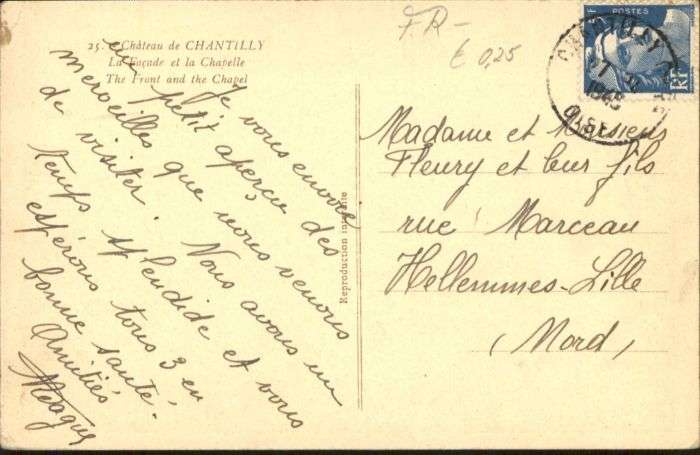 25. Château de CHANTILLY
La Façade et la Chapelle
The Front and the Chapel
Je vous envoie
un petit aperçu des
merveilles que nous venons
de visiter. Nous avons un
temps splendide et vous
espérons tous 3 en
bonne santé.
Amitiés
Reproduction interdite
F.R-
€ 0,25
POSTES
RF
CHANTILLY
1945
OISE
Madame et Monsieur
Fleury et leur fils
rue Marceau
Hellemmes-Lille
(Nord)